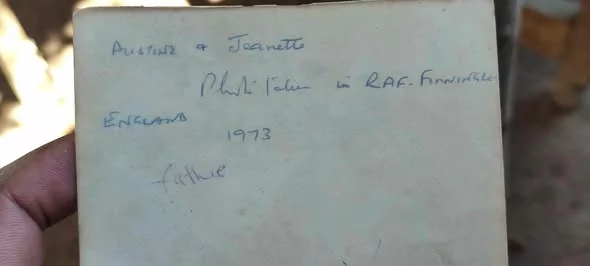 AUSTINE & Jeanette
Photo Taken in RAF-FINNINGLE
ENGLAND
1973
father